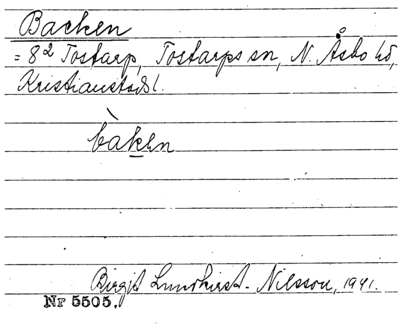 Backen
= 8² Tostarp, Tostarps sn, N. Åsbo hd,
Kristianstads l.
bàken
Birgit Lundkvist-Nilsson, 1941.
Nr 5505.